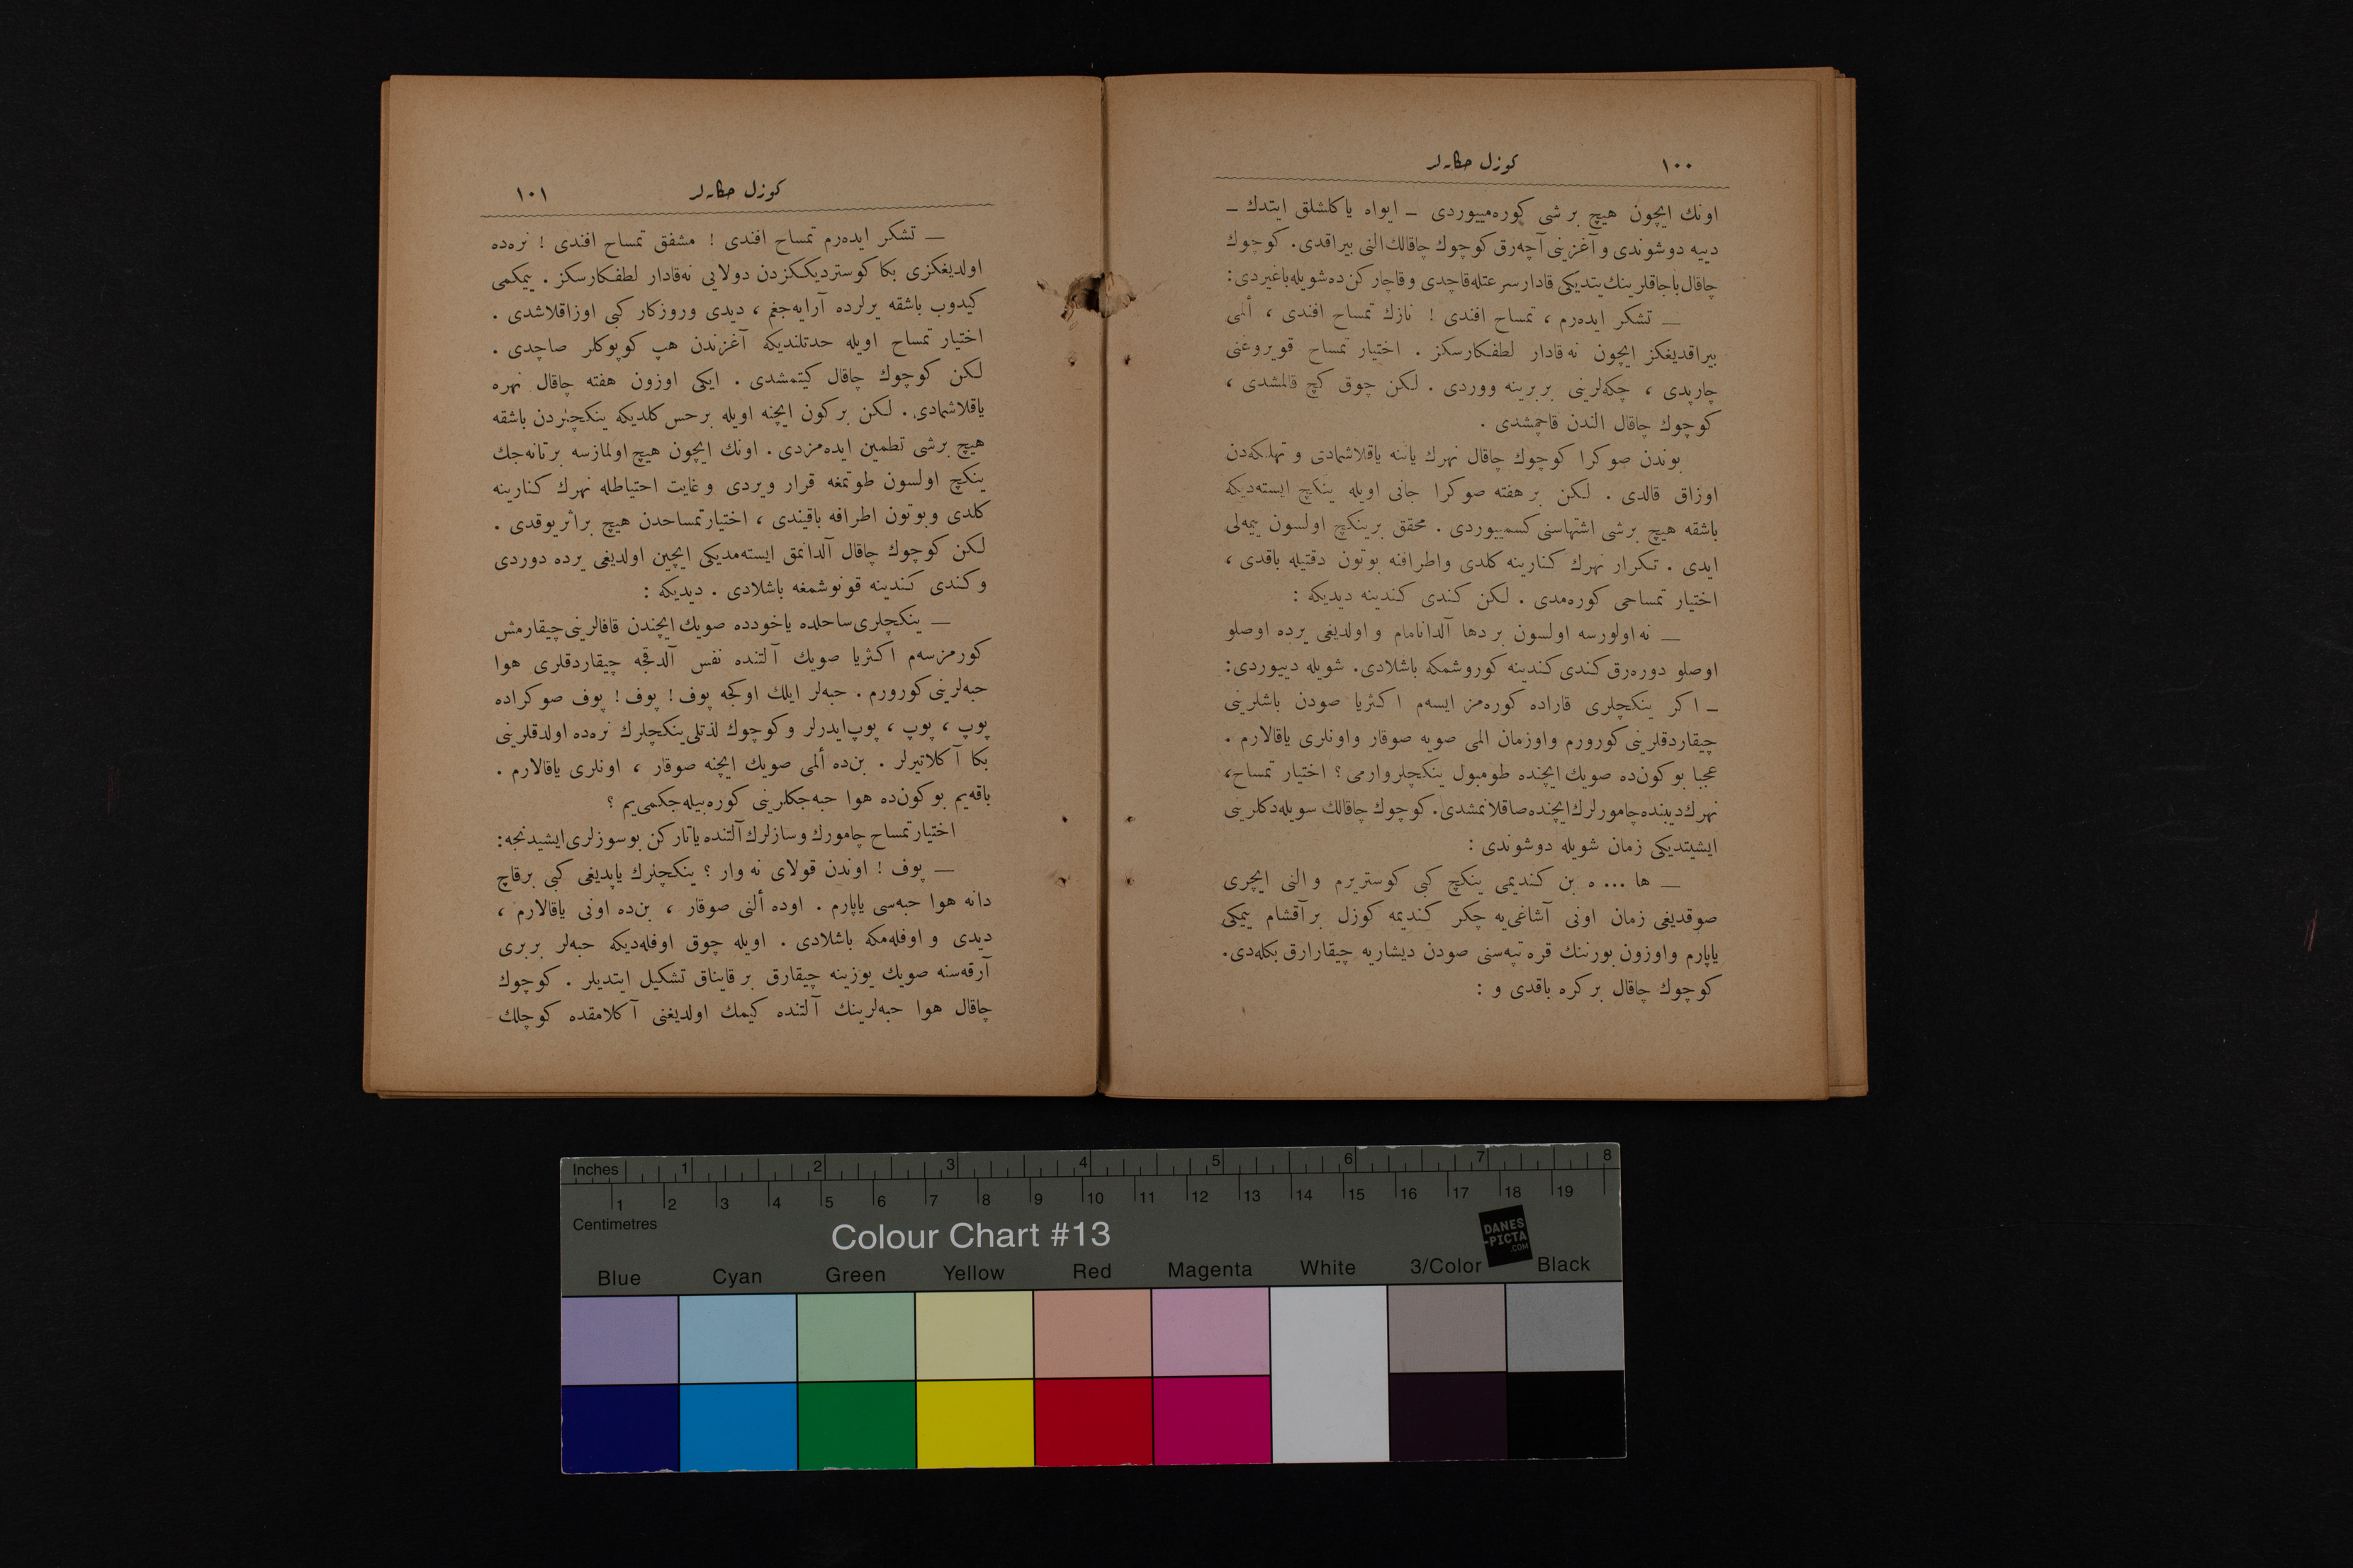 ١٠٠
كوزل حكايه‌لر
اونك ايچون هيچ بر شى كوره‌مييوردى ــ ايواه ياكلشلق ايتدك ــ
دييه دوشوندى و آغزينى آچه‌رق كوچوك چاقالك النى بيراقدى. كوچوك
چاقال باجاقلرينك يتديكى قادار سرعتله قاچدى و قاچاركن ده شويله باغيردى :
ــ تشكر ايده‌رم ، تمساح افندى ! نازك تمساح افندى ، ألمى
بيراقديغكز ايچون نه قادار لطفكارسكز . اختيار تمساح قويروغنى
چارپدى ، چكه‌لرينى بربرينه ووردى . لكن چوق كچ قالمشدى ،
كوچوك چاقال الندن قاچمشدى .
بوندن صوكرا كوچوك چاقال نهرك ياننه ياقلاشمادى و تهلكه‌دن
اوزاق قالدى . لكن بر هفته صوكرا جانى اويله ينكچ ايسته‌ديكه
باشقه هيچ بر شى اشتهاسنى كسمييوردى . محقق بر ينكچ اولسون ييمه‌لى
ايدى . تكرار نهرك كنارينه كلدى و اطرافنه بوتون دقتيله باقدى ،
اختيار تمساحى كوره‌مدى . لكن كندى كندينه ديديكه :
ــ نه اولورسه اولسون بر دها آلدانامام و اولديغى يرده اوصلو
اوصلو دوره‌رق كندى كندينه كوروشمكه باشلادى. شويله دييوردى :
ــ اكر ينكچلرى قاراده كوره‌مز ايسه‌م اكثريا صودن باشلرينى
چيقاردقلرينى كورورم و اوزمان المى صويه صوقار و اونلرى ياقالارم .
عجبا بو كون‌ده صويك ايچنده طومبول ينكچلر وارمى ؟ اختيار تمساح ،
نهرك ديبنده چامورلرك ايچنده صاقلانمشدى. كوچوك چاقالك سويله‌دكلرينى
ايشيتديكى زمان شويله دوشوندى :
ــ ها ... ه بن كنديمى ينكچ كبى كوستريرم و النى ايچرى
صوقديغى زمان اونى آشاغى‌يه چكر كنديمه كوزل بر آقشام ييمكى
ياپارم و اوزون بورننك قره تپه‌سنى صودن ديشاريه چيقارارق بكله‌دى .
كوچوك چاقال بر كره باقدى و :
كوزل حكايه‌لر
١٠١
ــ تشكر ايده‌رم تمساح افندى ! مشفق تمساح افندى ! نره‌ده
اولديغكزى بكا كوسترديككزدن دولايى نه‌قادار لطفكارسكز . ييمكمى
كيدوب باشقه يرلرده آرايه‌جغم ، ديدى و روزكار كبى اوزاقلاشدى .
اختيار تمساح اويله حدتلنديكه آغزندن هپ كوپوكلر صاچدى .
لكن كوچوك چاقال كيتمشدى . ايكى اوزون هفته چاقال نهره
ياقلاشمادى. لكن بر كون ايچنه اويله بر حس كلديكه ينكچلردن باشقه
هيچ برشى تطمين ايده‌مزدى . اونك ايچون هيچ اولمازسه بر تانه‌جك
ينكچ اولسون طوتمغه قرار ويردى و غايت احتياطله نهرك كنارينه
كلدى و بوتون اطرافه باقيندى ، اختيار تمساحدن هيچ بر اثر يوقدى .
لكن كوچوك چاقال آلدانمق ايسته‌مديكى ايچين اولديغى يرده دوردى
و كندى كندينه قونوشمغه باشلادى . ديديكه :
ــ ينكچلرى ساحلده ياخودده صويك ايچندن قافالرينى چيقارمش
كورمزسه‌م اكثريا صويك آلتنده نفس آلدقجه چيقاردقلرى هوا
حبه‌لرينى كورورم . حبه‌لر ايلك اوكجه پوف ! پوف ! پوف صوكراده
پوپ ، پوپ ، پوپ ايدرلر و كوچوك لذتلى ينكچلرك نره‌ده اولدقلرينى
بكا آكلاتيرلر . بن‌ده ألمى صويك ايچنه صوقار ، اونلرى ياقالارم .
باقه‌يم بو كون‌ده هوا حبه‌جكلرينى كوره‌بيله‌جكمى‌يم ؟
اختيار تمساح چامورك و سازلرك آلتنده ياتاركن بو سوزلرى ايشيدنجه :
ــ پوف ! اوندن قولاى نه وار ؟ ينكچلرك ياپديغى كبى برقاچ
دانه هوا حبه‌سى ياپارم . اوده ألنى صوقار ، بن‌ده اونى ياقالارم ،
ديدى و اوفله‌مكه باشلادى . اويله چوق اوفله‌ديكه حبه‌لر بربرى
آرقه‌سنه صويك يوزينه چيقارق بر قايناق تشكيل ايتديلر . كوچوك
چاقال هوا حبه‌لرينك آلتنده كيمك اولديغنى آكلامقده كوچلك
Inches 1 2 3 4 5 6 7 8
1 2 3 4 5 6 7 8 9 10 11 12 13 14 15 16 17 18 19
Centimetres
Colour Chart #13
DANES
-PICTA
.COM
Blue Cyan Green Yellow Red Magenta White 3/Color Black